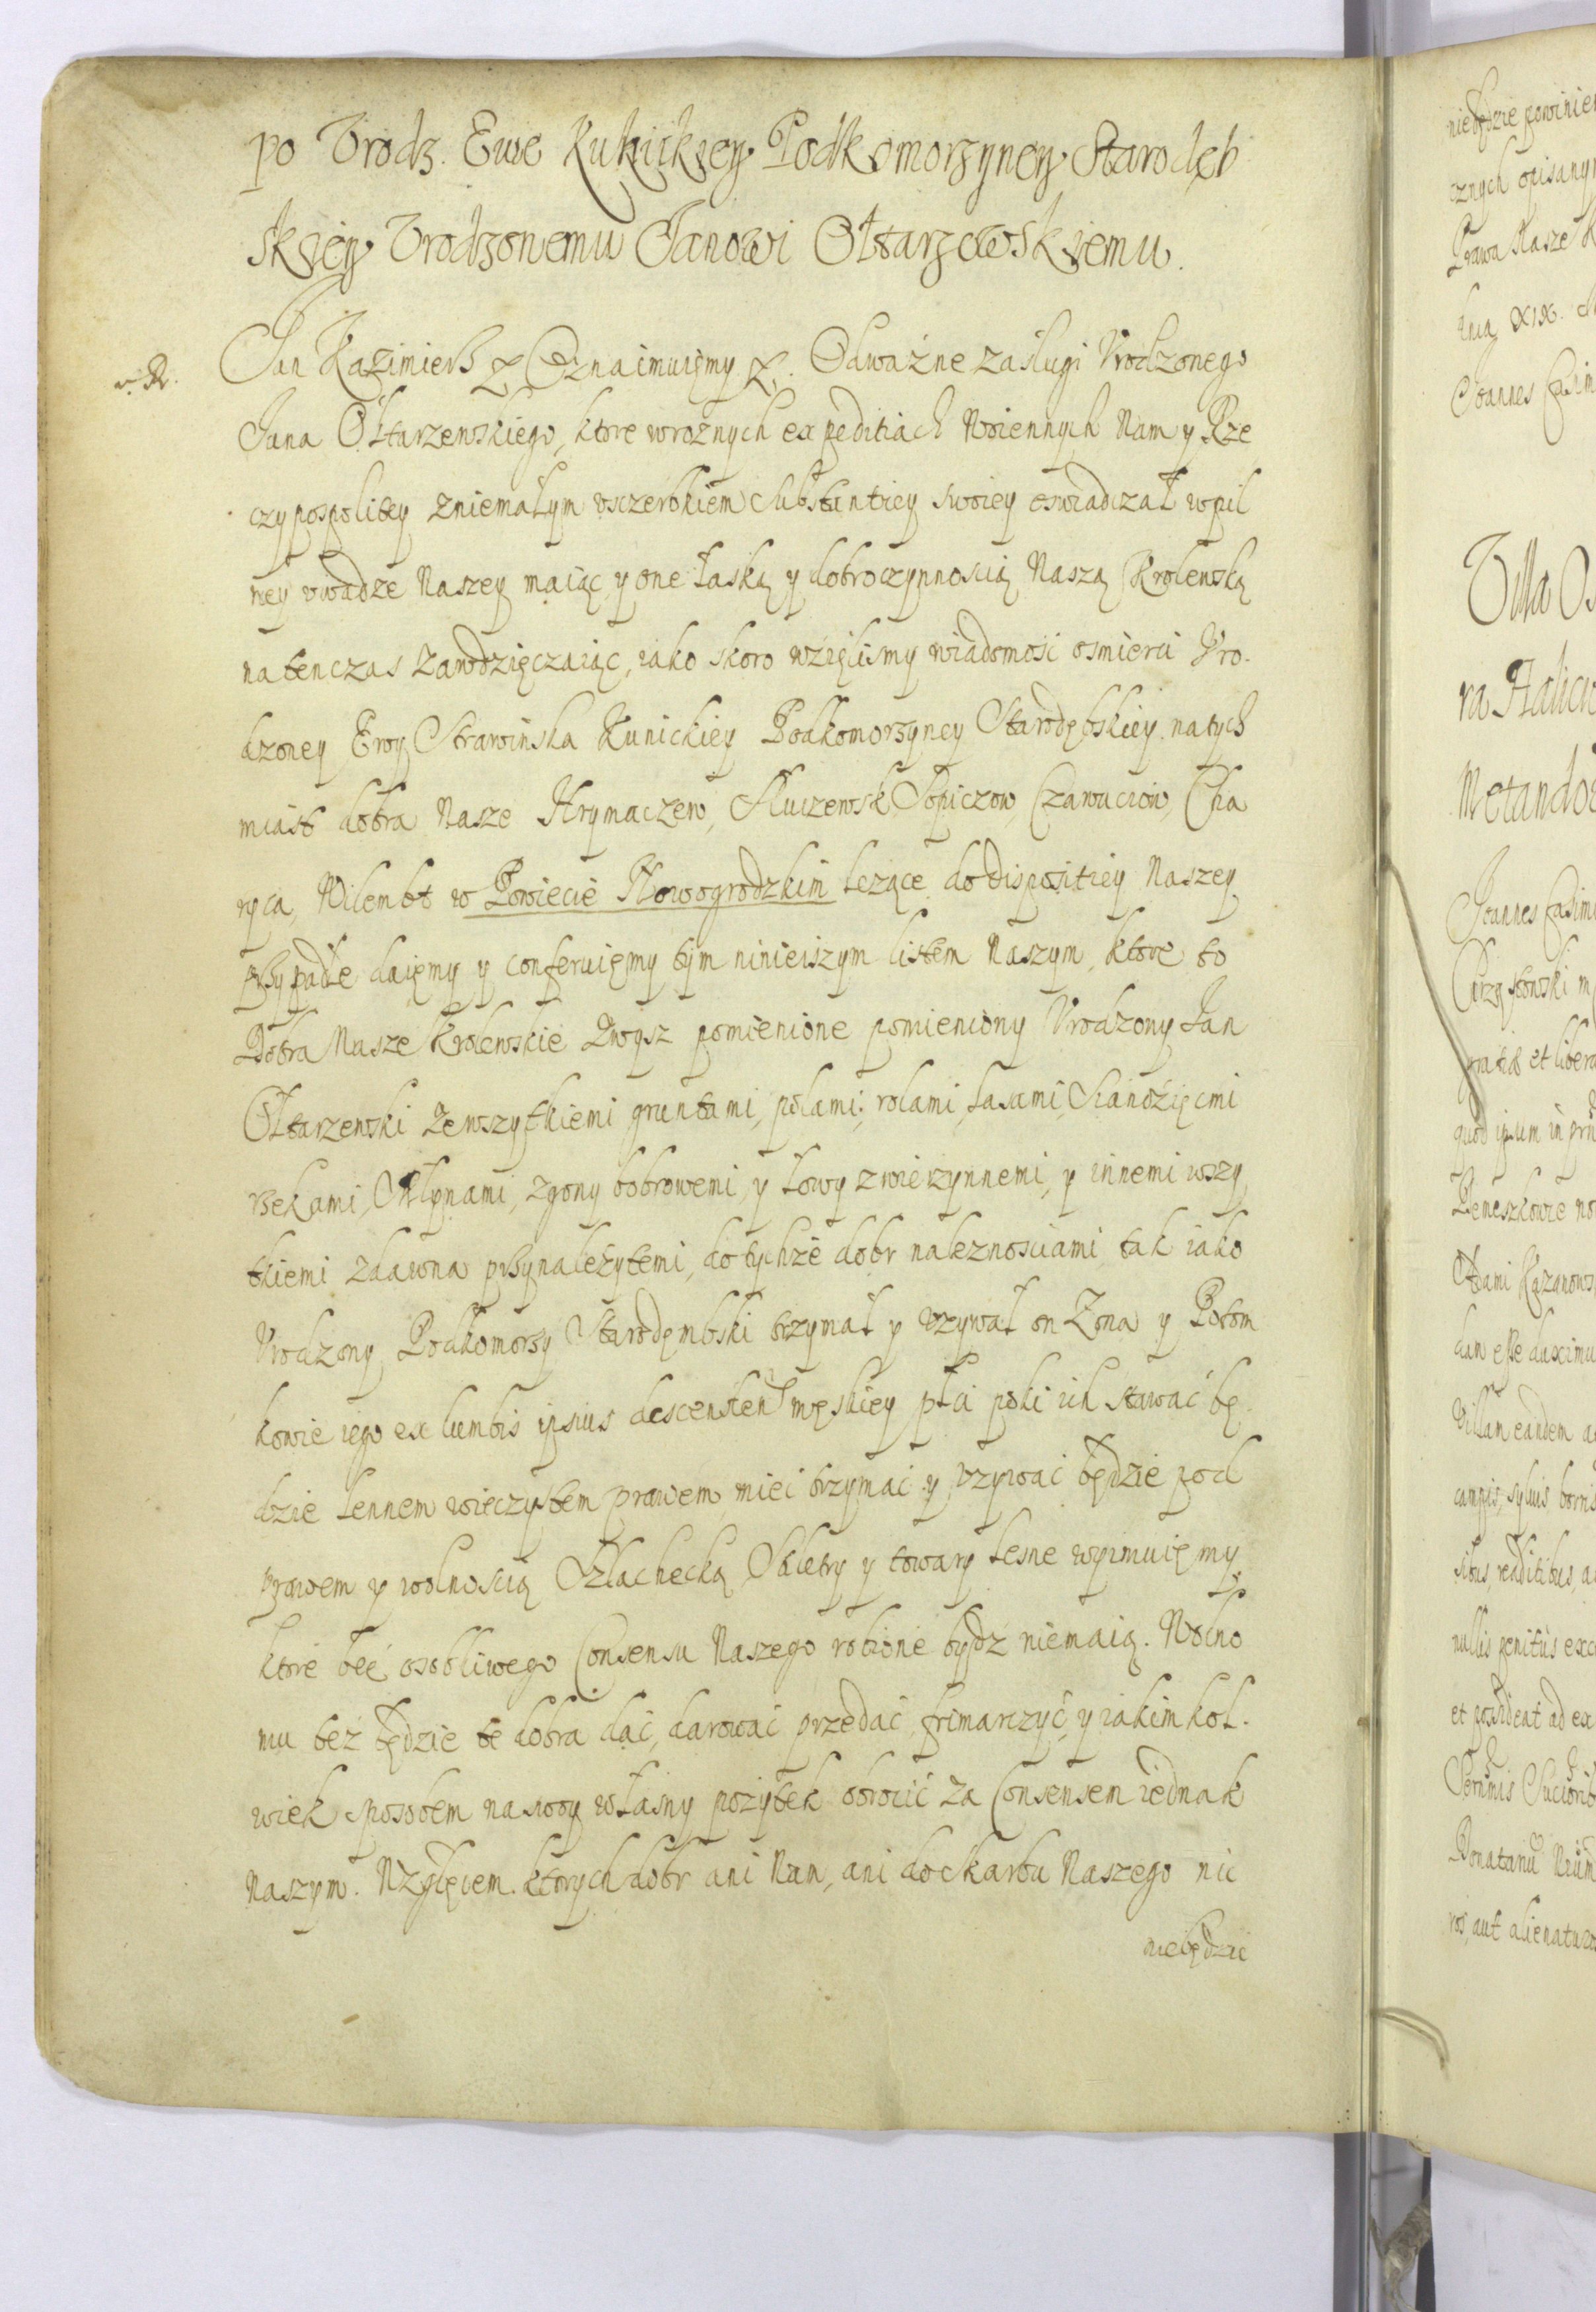 po Vrodz. Ewe Kunickiey Podkomorzyney Starodęb
skiey Vrodzonemu Janowi Ołtarzewskiemu.
Jan Kazimierz &c Oznaimuiemy &c. Odważne zasługi Vrodzonego
Jana Ołtarzewskiego, ktore wrożnych expeditiach Woiennych Nam y Rze
czypospolitey zniemałym vsczerbkiem Substantiey swoiey oswiadczał wpil
ney vwadze Naszey maiąc, y one łaską y dobroczynnoscią Naszą Krolewską
natenczas zawdzięczaiąc, iako skoro wzięlismy wiadomosć osmierci Vro-
dzoney Ewy Strawinska Kunickiey Podkomorzyney Starodębskiey, natych
miast dobra Nasze Hrymaczew, Słuczewsk, Sopiczow, Czawuciow, Cha
ryca, Wilembt w Powiecie Nowogrodzkim leżące do dispositiey Naszey
przypadłe daięmy y conferuięmy tym ninieiszym listem Naszym, ktore to
Dobra Nasze Krolewskie Zwysz pomienione pomieniony Vrodzony Jan
Ołtarzewski Zewszytkiemi gruntami, polami, rolami, lasami, Sianożięcmi
rzekami, Młynami, zgony bobrowemi, y łowy zwierzynnemi, y innemi wszy
tkiemi zdawna przynależytemi, do tychże dobr należnosciami tak iako
Vrodzony Podkomorzy Starodembski trzymał y vzywał on Zona y Potom
kowie iego ex lumbis ipsius descenden męskiey płci poki ich stawać bę-
dzie lennem wieczystem prawem, mieć trzymać y vzywać będzie pod
prawem y wolnoscią Szlachecką Saletry y towary lesne wyimuięmy
ktore beż osobliwego Consensu Naszego robione bydz niemaią. Wolno
mu też będzie te dobra dać, darować przedać, frimarczyć, y iakimkol-
wiek sposobem na swoy własny pożytek obrocić za Consensem iednak
Naszym. Wzglęem ktorych dobr ani Nam, ani do Skarbu Naszego nic
niebędzie
niebędzie powinien
Prawa Nasze
Joannes Casim
Villa
Joannes Casim
quod ipsum in
Villam eandem
nullis penitus
et possideat ad
ros, aut alienaturos